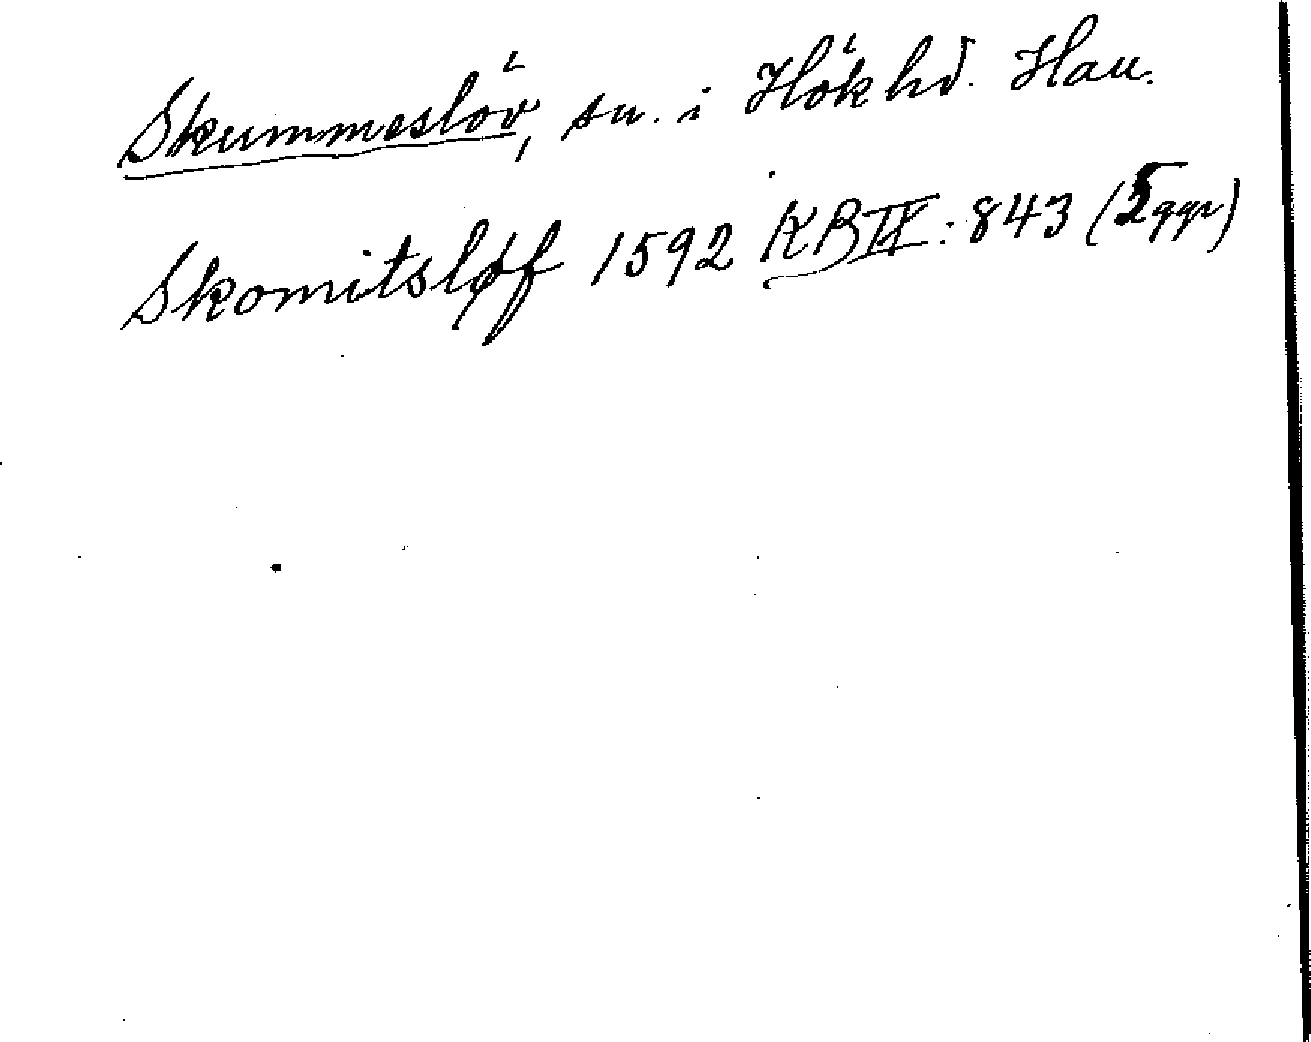 Skummeslöv, sn. i Hök hd. Hall.
Skomitsløf 1592 KB IX: 843 (5 ggr)